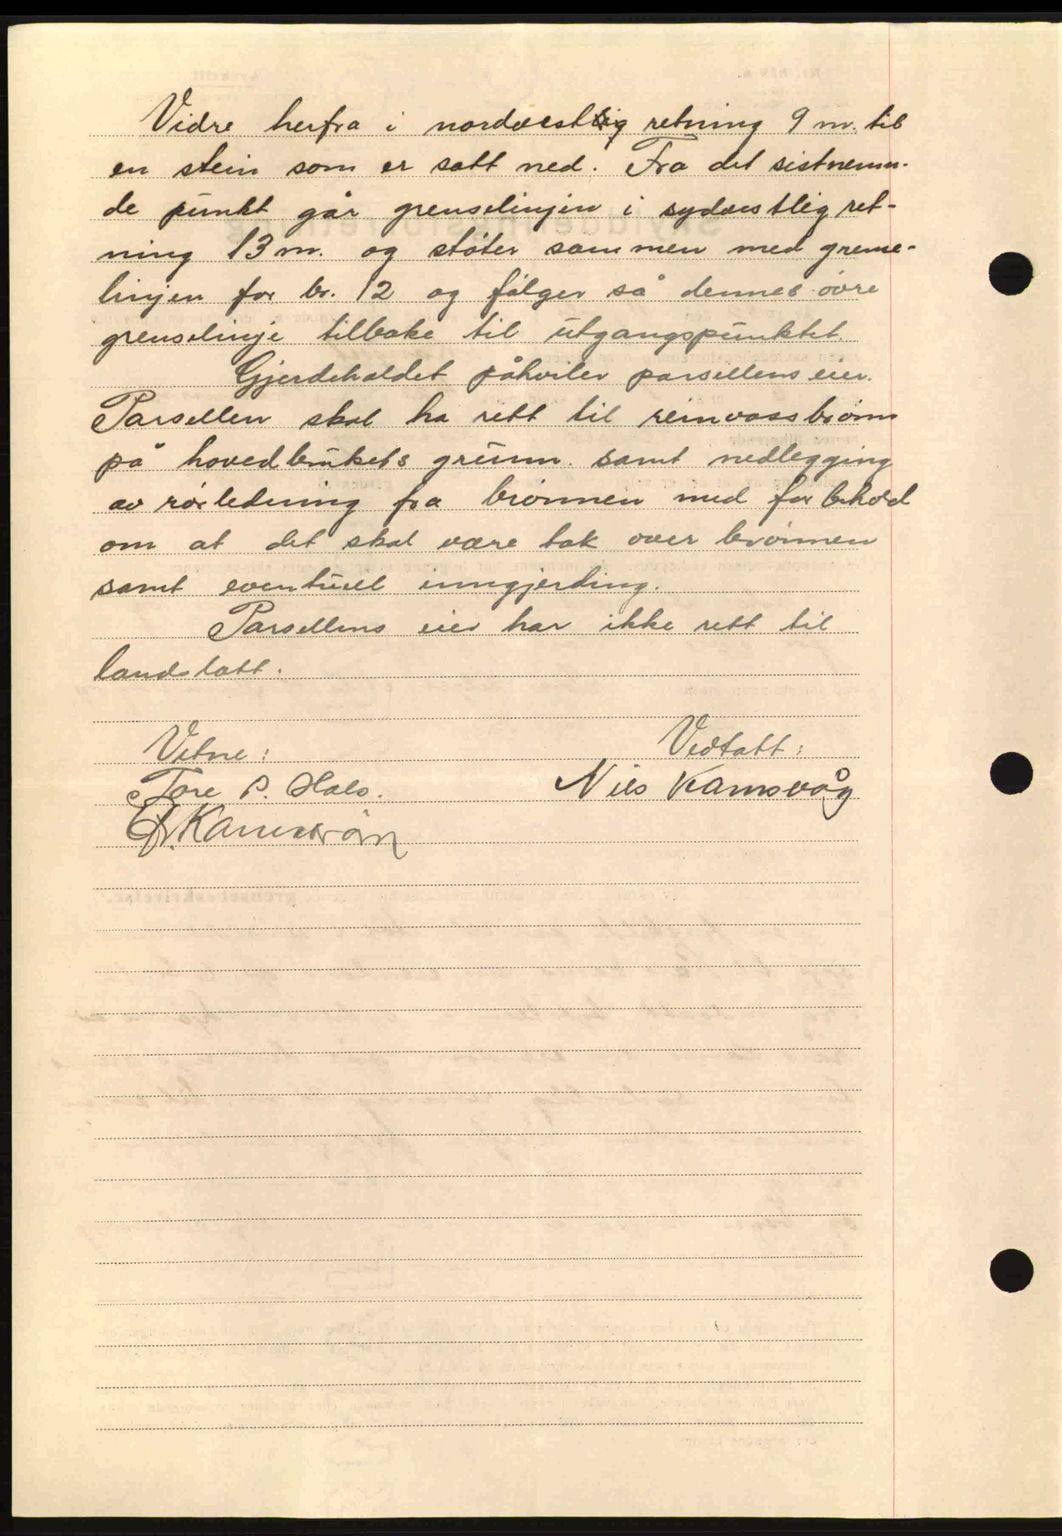 Vidre herfra i nordvestlig retning 9 m. til
en stein som er satt ned. Fra det sistnemn-
de punkt går grenselinjen i sydvestlig ret-
ning 13 m. og støter sammen med grense-
linjen for br. 12 og følger så dennes øvre
grenselinje tilbake til utgangspunktet.
Gjerdeholdet påhviler parsellens eier.
Parsellen skal ha rett til reinvassbrønn
på hovedbrukets grunn. samt nedlegging
av rørledning fra brønnen med forbehold
om at det skal være tak over brønnen
samt eventuell inngjerding.
Parsellens eier har ikke rett til
landslott.
Vitne: Vedtatt:
Tore P. Hals. Nils Kamsvåg